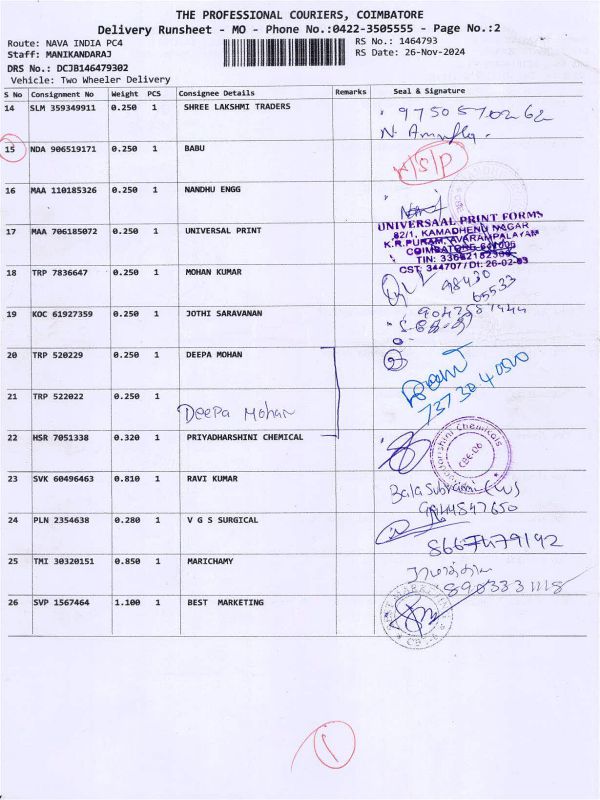 THE PROFESSIONAL COURIERS, COIMBATORE
Delivery Runsheet - MO - Phone No.:0422-3505555 - Page No.:2
Route: NAVA INDIA PC4
RS No.: 1464793
Staff: MANIKANDARAJ
RS Date: 26-Nov-2024
DRS No.: DCJB146479302
Vehicle: Two Wheeler Delivery
S No Consignment No Weight PCS Consignee Details Remarks Seal & Signature
14 SLM 359349911 0.250 1 SHREE LAKSHMI TRADERS
15 NDA 906519171 0.250 1 BABU
N/S/P
16 MAA 110185326 0.250 1 NANDHU ENGG
17 MAA 706185072 0.250 1 UNIVERSAL PRINT
UNIVERSAAL PRINT FORMS
62/1, KAMADHENU NAGAR
K.R.PURAM, AVARAMPALAYAM
COIMBATORE
TIN:
CST: 344707 / Dt: 26-02-93
18 TRP 7836647 0.250 1 MOHAN KUMAR
98430
65533
19 KOC 61927359 0.250 1 JOTHI SARAVANAN
20 TRP 520229 0.250 1 DEEPA MOHAN
2
21 TRP 522022 0.250 1
Deepa Mohan
22 HSR 7051338 0.320 1 PRIYADHARSHINI CHEMICAL
Priyadharshini Chemicals
CBE-06
23 SVK 60496463 0.810 1 RAVI KUMAR
24 PLN 2354638 0.280 1 V G S SURGICAL
8667479192
25 TMI 30320151 0.850 1 MARICHAMY
8903331118
26 SVP 1567464 1.100 1 BEST MARKETING
1